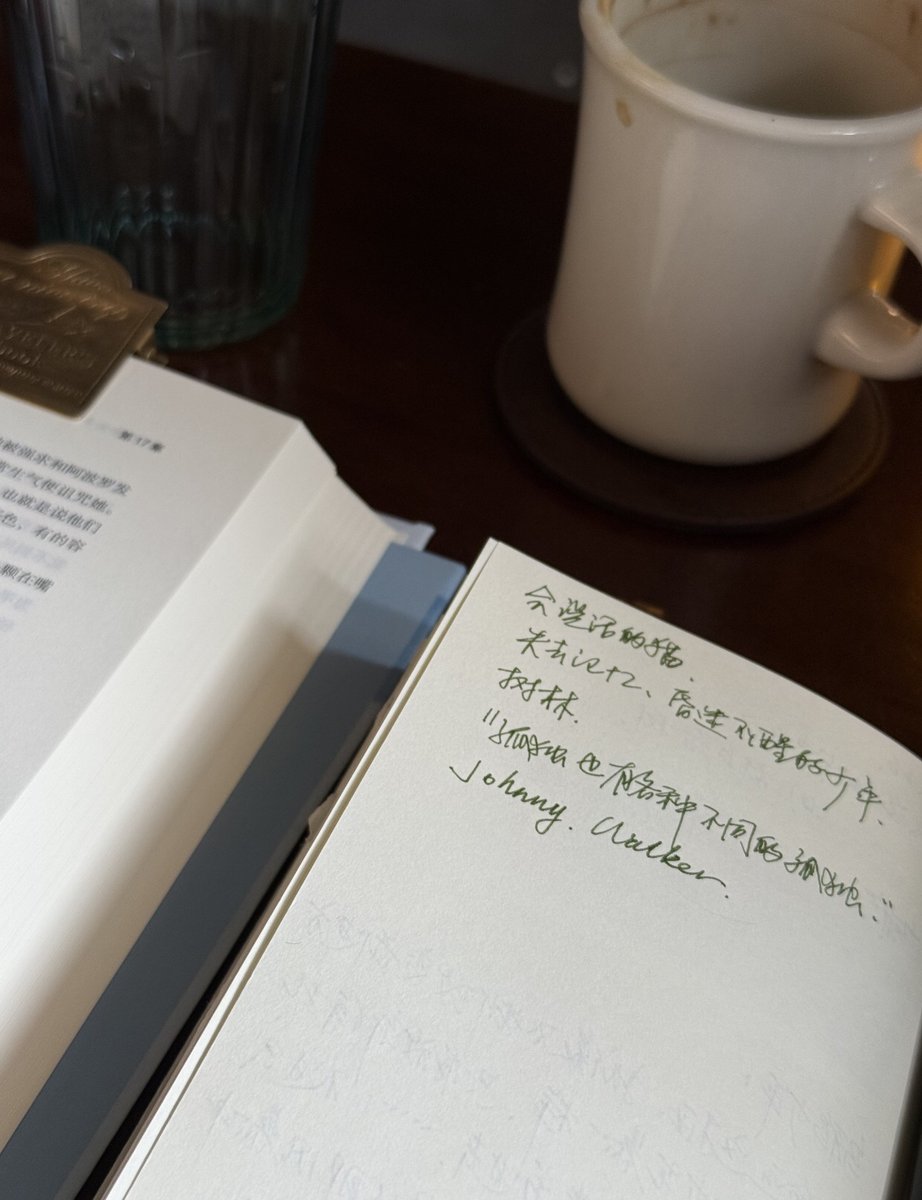 第17章
被强求和阿波罗发
生气便诅咒她。
也就是说他们
色、有的容
颗在嘴
会说话的猫.
失去记忆、昏迷不醒的少年.
树林.
"孤独也有各种不同的孤独."
Johnny. Walker.